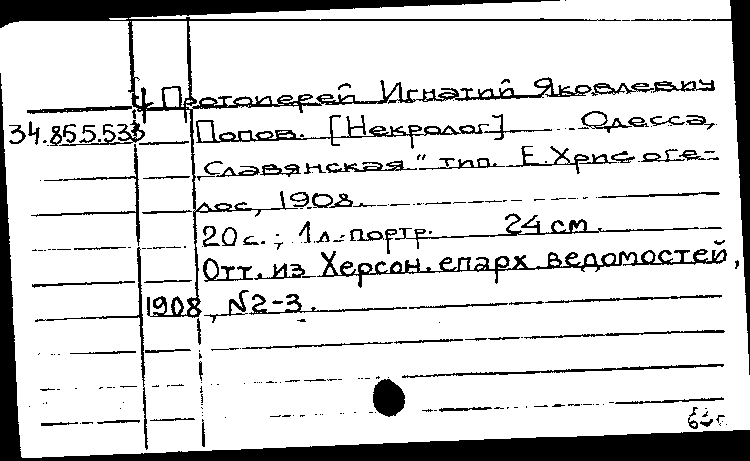 † Протоиерей Игнатий Яковлевич
34.85.5.533 Попов. [Некролог] Одесса,
„Славянская" тип. Е. Хрисоге-
лос, 1908.
20 с.; 1 л. портр. 24 см.
Отт. из Херсон. епарх. ведомостей,
1908, №2-3.